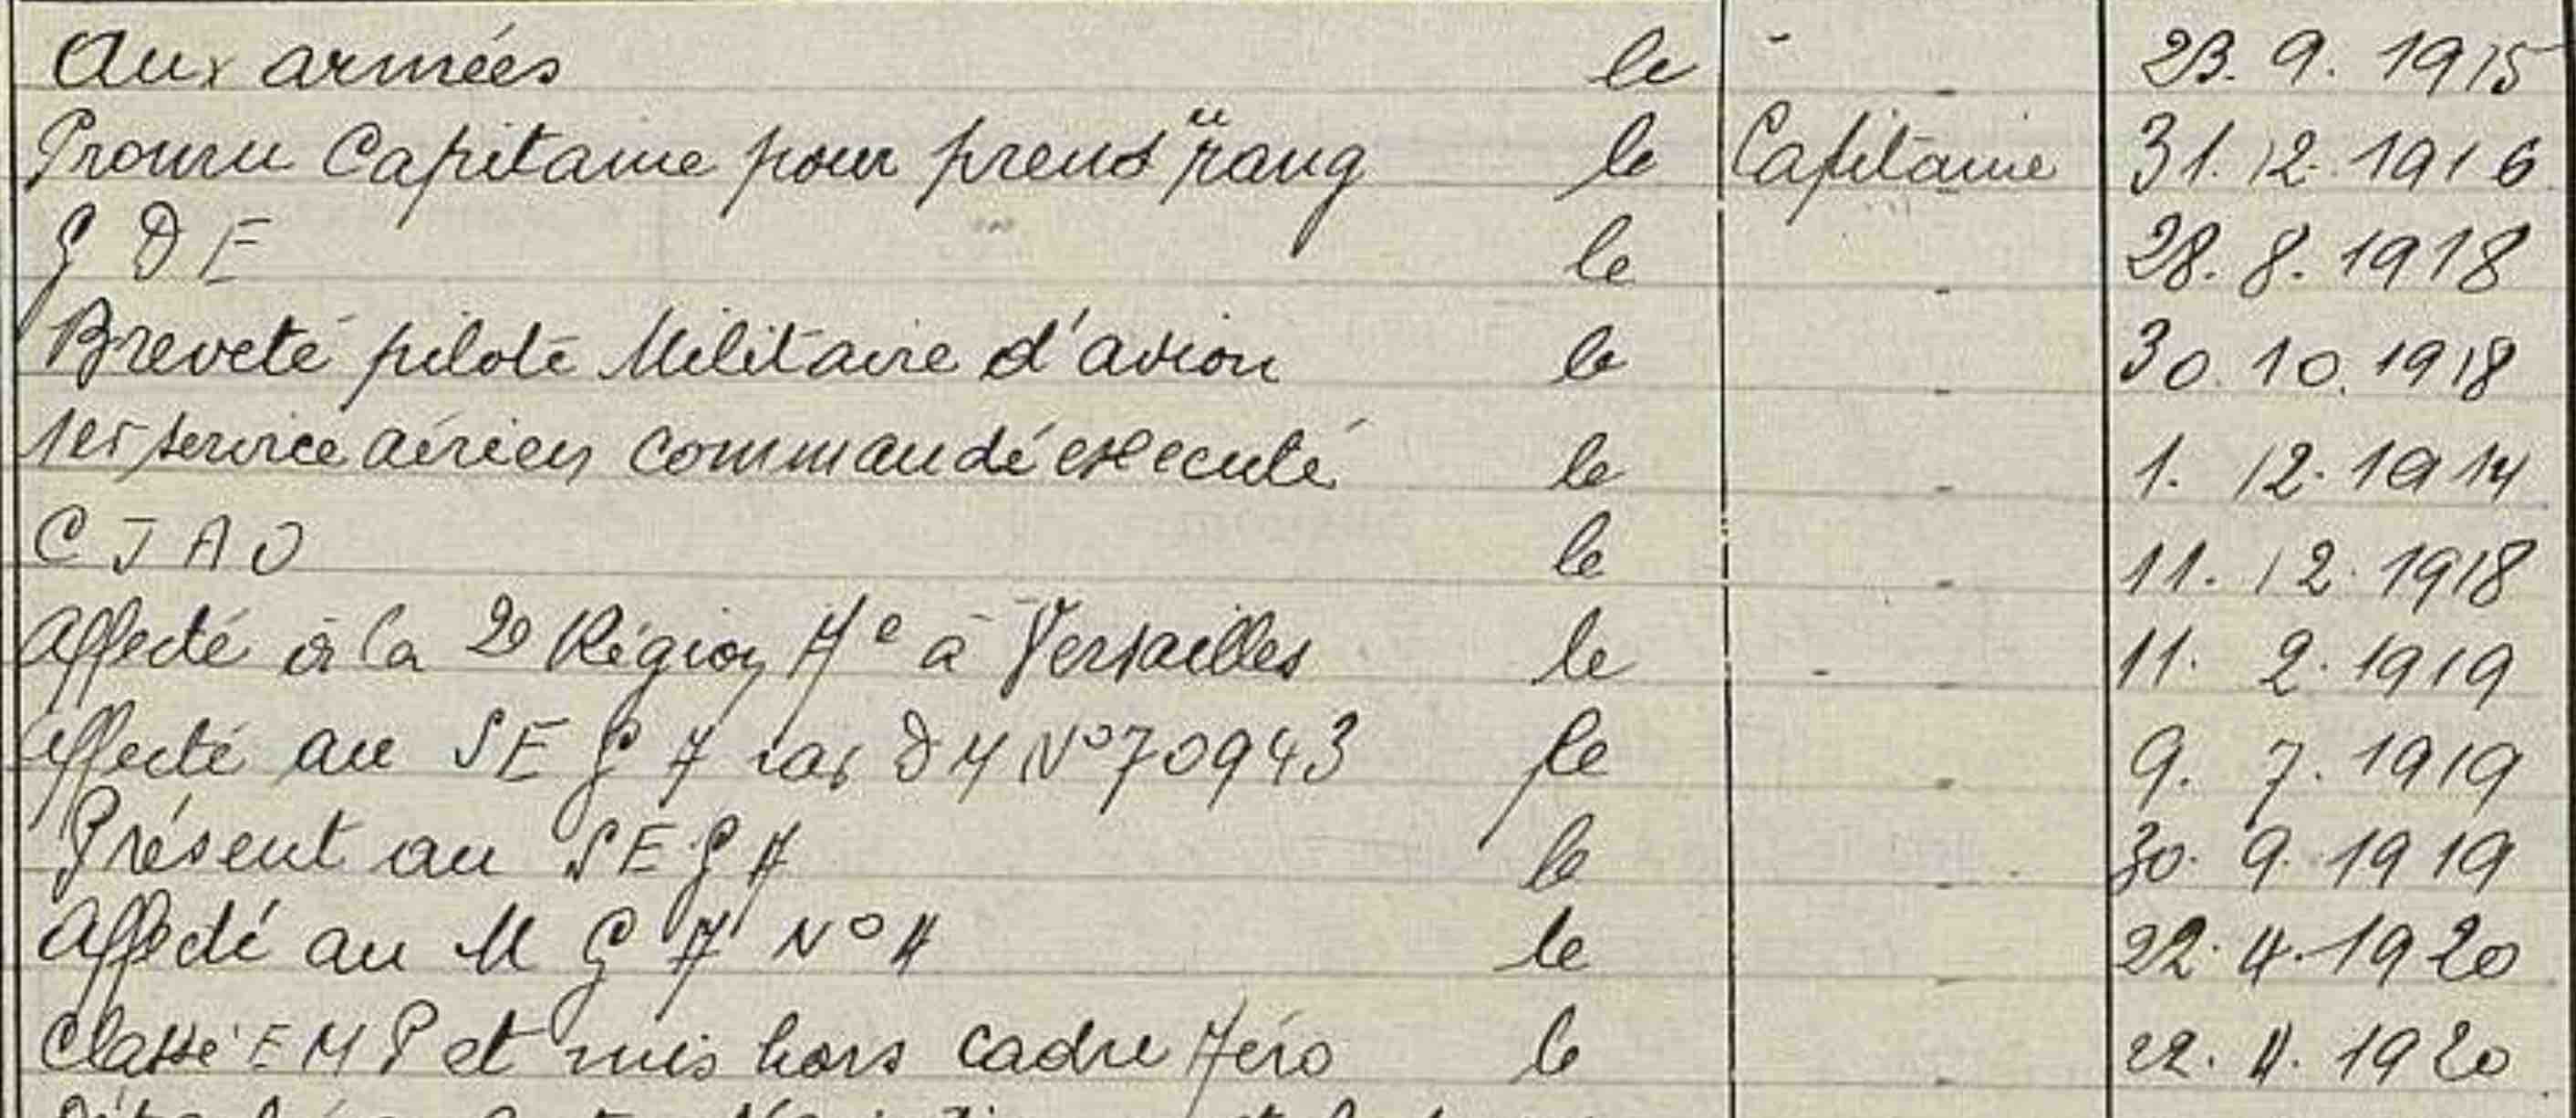 Aux armées le - - 23. 9. 1915
Promu Capitaine pour prend" rang le Capitaine 31. 12. 1916
G D E le - 28. 8. 1918
Breveté pilote Militaire d'avion le - 30. 10. 1918
1er service aérien commandé executé le - 1. 12. 1914
C J A O le - 11. 12. 1918
Affecté à la 2e Région Ae à Versailles le - - 11. 2. 1919
Affecté au S E G A par D M No 70943 le - 9. 7. 1919
Présent au S E G A le - 30. 9. 1919
Affecté au M G A No 4 le - 22. 4. 1920
Classé E M P et mis hors cadre Aéro le - 22. 4. 1920